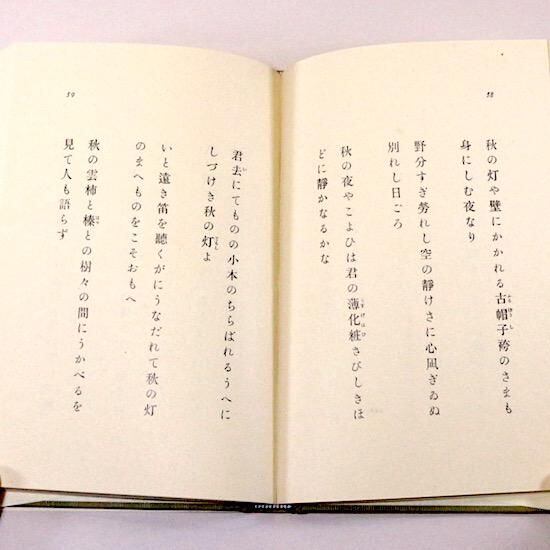 58
秋の灯や壁にかかれる古帽子袴のさまも
身にしむ夜なり
野分すぎ勞れし空の靜けさに心凪ぎゐぬ
別れし日ごろ
秋の夜やこよひは君の薄化粧さびしきほ
どに靜かなるかな
59
君去にてものの小本のちらばれるうへに
しづけき秋の灯よ
いと遠き笛を聽くがにうなだれて秋の灯
のまへものをこそおもへ
秋の雲柿と榛との樹々の間にうかべるを
見て人も語らず